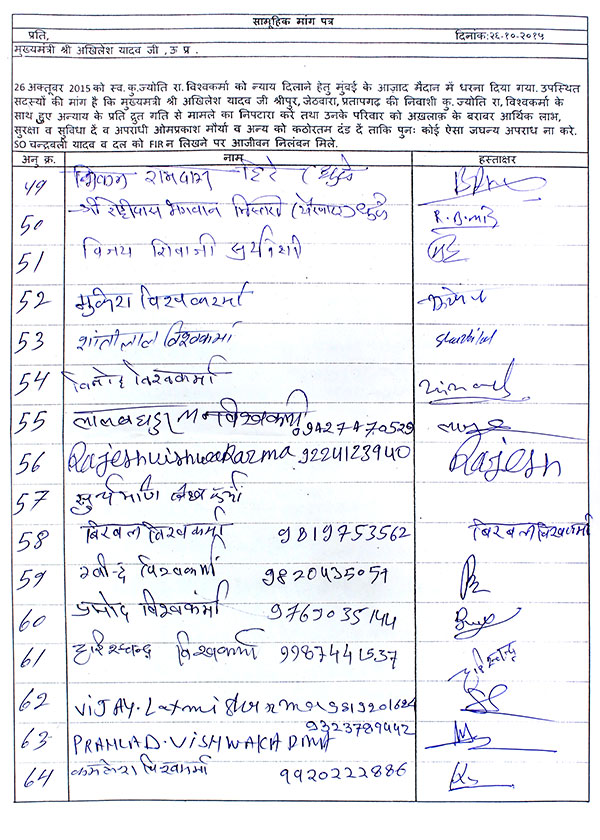 सामूहिक मांग पत्र
प्रति, दिनांक:२६-१०-२०१५
मुख्यमंत्री श्री अखिलेश यादव जी ,ऊ प्र .
26 अक्तूबर 2015 को स्व.कु.ज्योति रा. विश्वकर्मा को न्याय दिलाने हेतु मुंबई के आज़ाद मैदान में धरना दिया गया. उपस्थित
सदस्यों की मांग है कि मुख्यमंत्री श्री अखिलेश यादव जी श्रीपुर, जेठवारा, प्रतापगढ़ की निवाशी कु. ज्योति रा, विश्वकर्मा के
साथ हुए अन्याय के प्रति द्रुत गति से मामले का निपटारा करें तथा उनके परिवार को अख़लाक़ के बराबर आर्थिक लाभ,
सुरक्षा व सुविधा दें व अपराधी ओमप्रकाश मौर्या व अन्य को कठोरतम दंड दें ताकि पुनः कोई ऐसा जघन्य अपराध ना करे.
SO चन्द्रबली यादव व दल को FIR न लिखने पर आजीवन निलंबन मिले.
अनु क्र. नाम हस्ताक्षर
49 रामदास
50 श्री भगवान मिस्तरी R.B.
51 विजय शिवाजी सुर्यवंशी
52 मुकेश विश्वकर्मा
53 शांतीलाल विश्वकर्मा Shantilal
54 विनोद विश्वकर्मा
55 विश्वकर्मा 9427470529
56 Rajesh vishwakarma 9224123940 Rajesh
57 सुर्यमणि विश्वकर्मा
58 बिरबल विश्वकर्मा 9819753562 बिरबल विश्वकर्मा
59 विश्वकर्मा 9820435051
60 प्रमोद विश्वकर्मा 9769035144
61 हरिश्चन्द्र विश्वकर्मा 9987441537 हरिश्चन्द्र
62 VIJAY. Laxmi 9819201624
63 PRAHLAD. VISHWAKARMA 9323789442
64 कमलेश विश्वकर्मा 9920222886